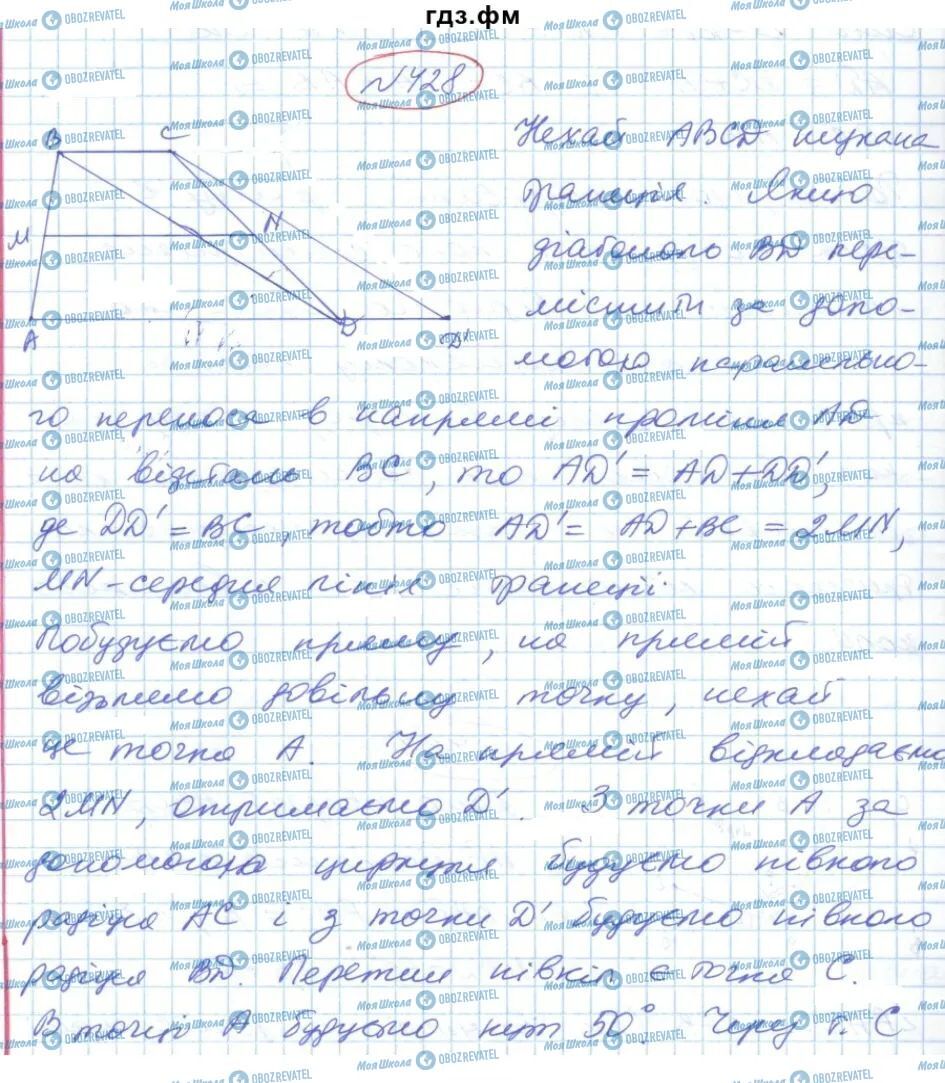 гдз.фм
№428
B C
Нехай ABCD шукана
трапеція. Якщо
M N
діагональ BD пере-
містити за допо-
A D D'
могою паралельно-
го переноса в напрямі променя AD
на відстань BC, то AD' = AD + DD',
де DD' = BC, тобто AD' = AD + BC = 2MN,
MN - середня лінія трапеції.
Побудуємо пряму, на прямій
візьмемо довільну точку, нехай
це точка A. На прямій відкладаємо
2MN, отримаємо D'. З точки A за
допомогою циркуля будуємо півколо
радіуса AC і з точки D' будуємо півколо
радіуса BD. Перетин півкіл є точка C.
В точці A будуємо кут 50° Через т. C